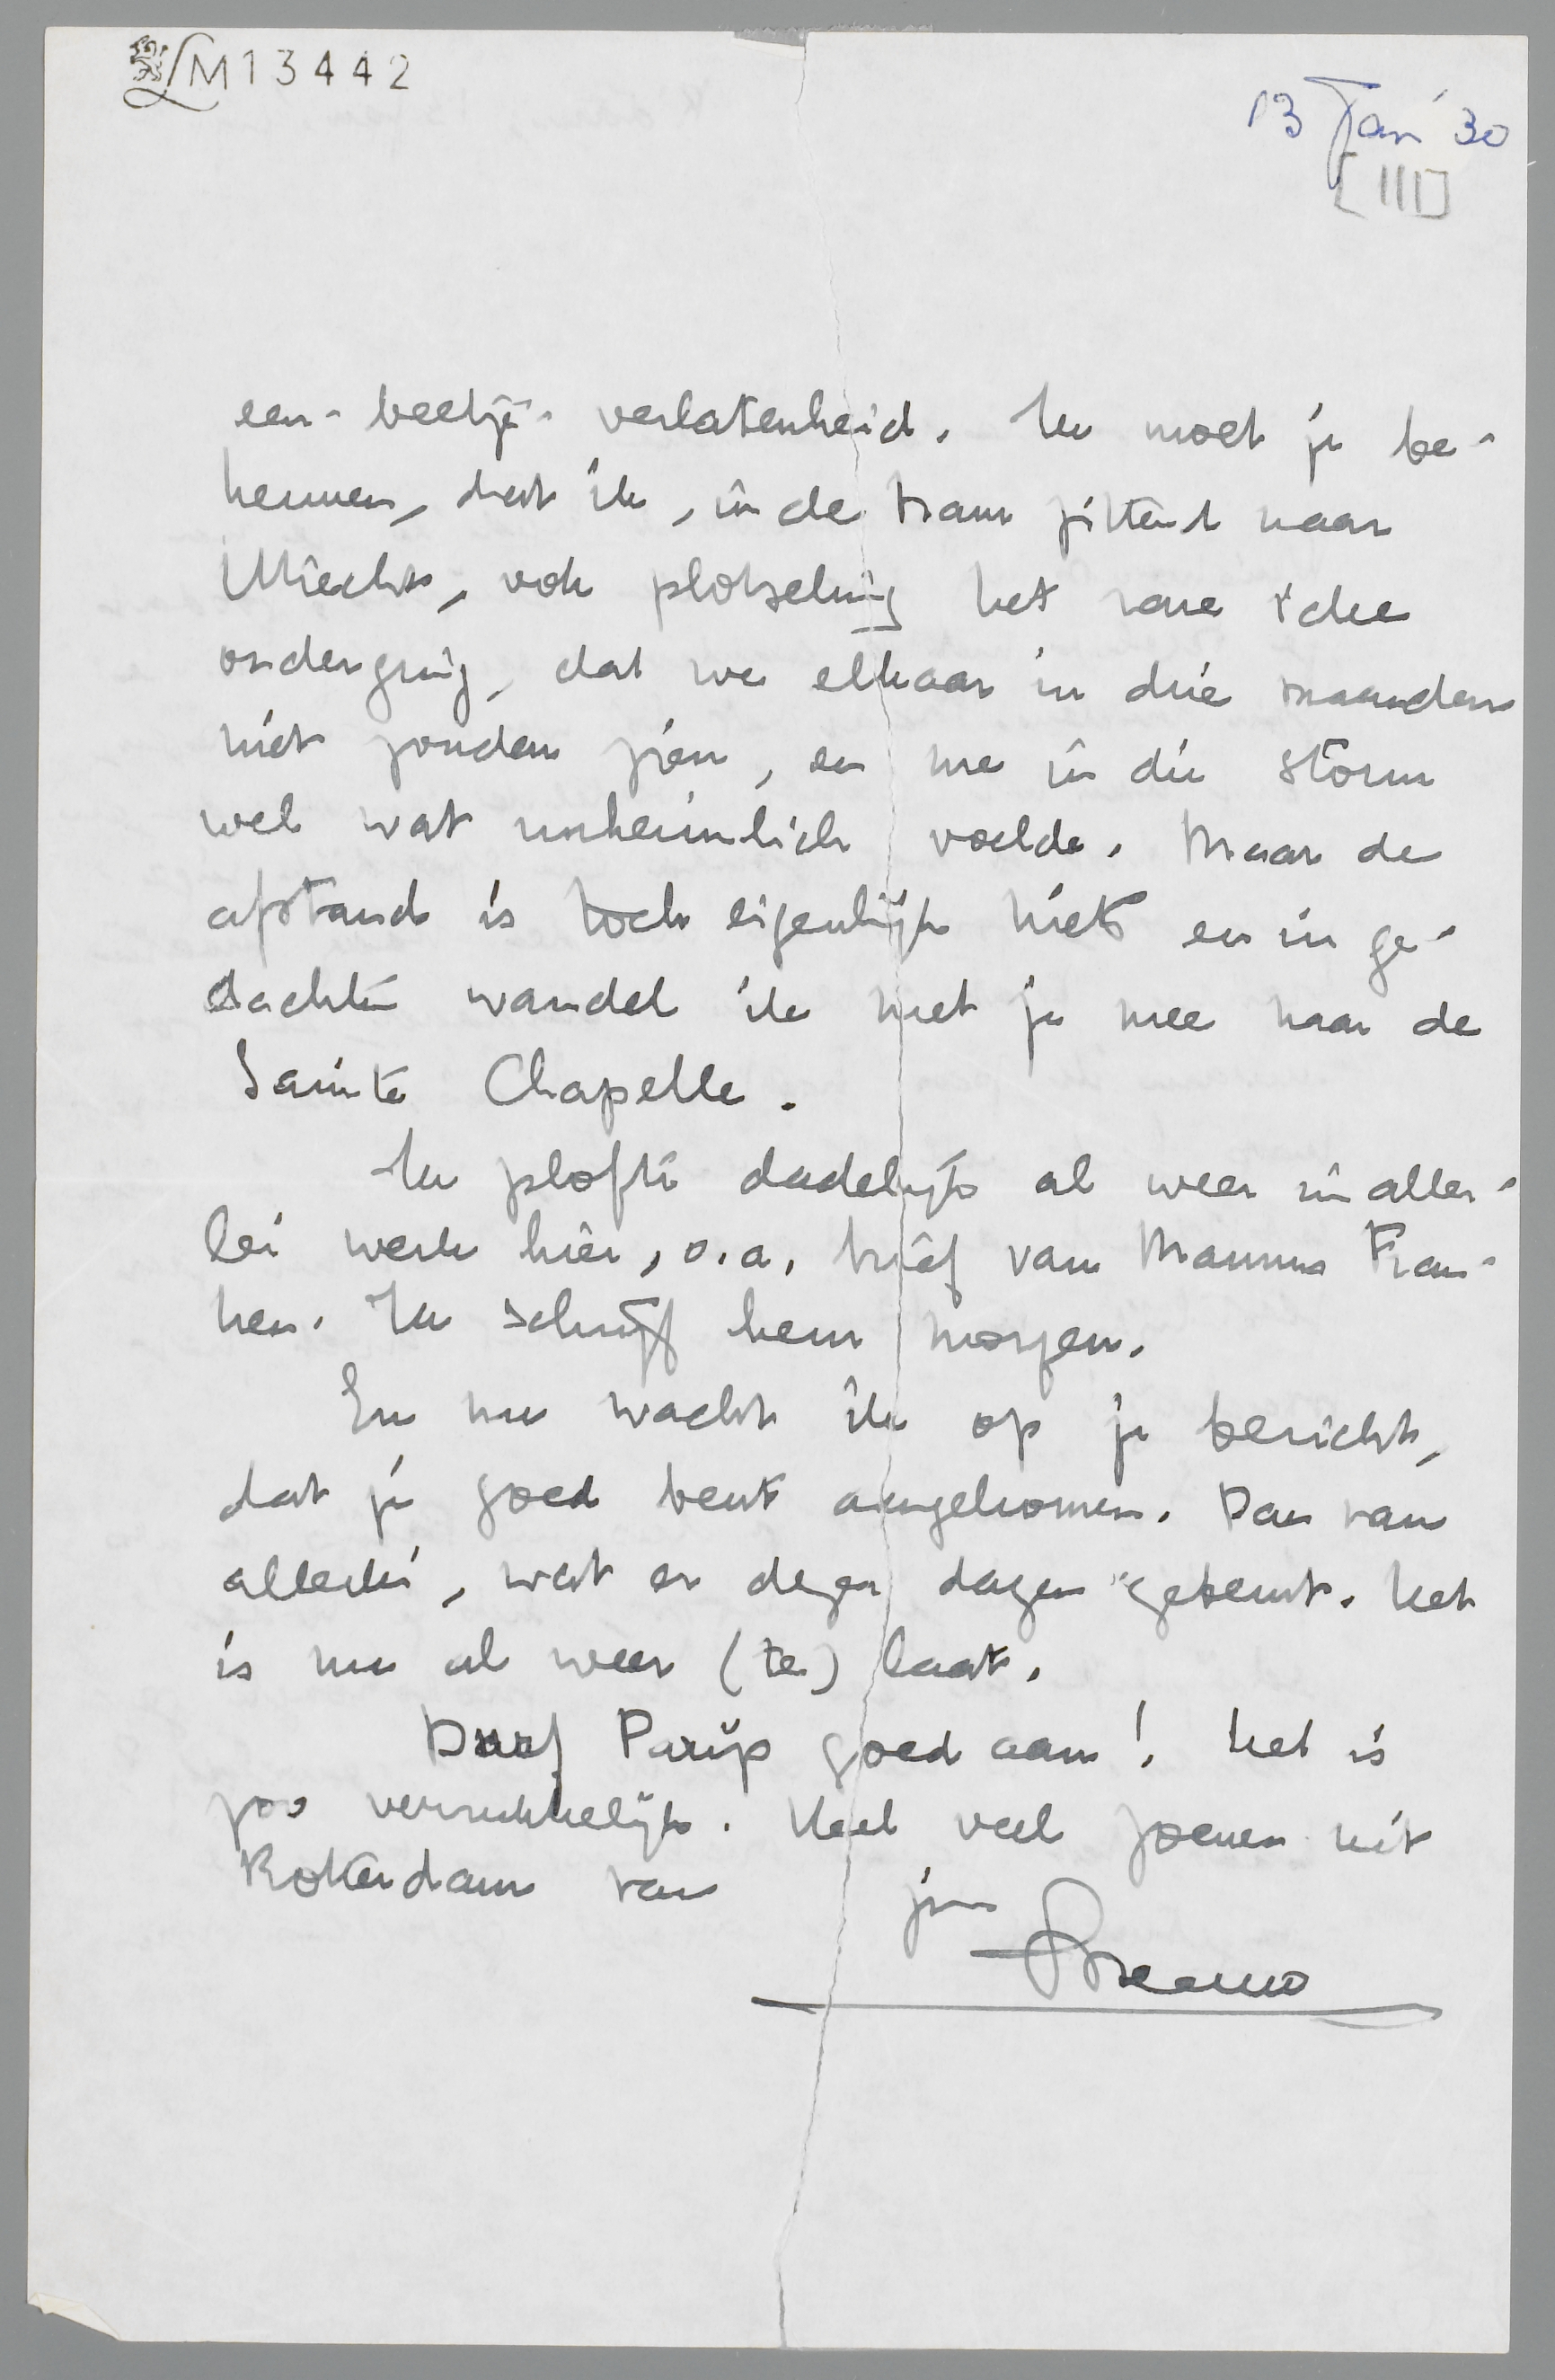 LM13442
13 Jan '30
[III]
een-beetje-verlatenheid. Ik moet je be-
kennen, dat ik, in de tram zittend naar
Utrecht, ook plotseling het rare idee
onderging, dat we elkaar in drie maanden
niet zouden zien, en me in die storm
wel wat unheimlich voelde. Maar de
afstand is toch eigenlijk niets en in ge-
dachten wandel ik met je mee naar de
Sainte Chapelle.
Ik plofte dadelijk al weer in aller-
lei werk hier, o.a. brief van Mannus Fran-
ken. Ik schrijf hem morgen.
En nu wacht ik op je bericht,
dat je goed bent aangekomen. Dan van
allerlei, wat er dezer dagen gebeurt. Het
is nu al weer (te) laat.
Durf Parijs goed aan! Het is
zoo verrukkelijk. Heel veel zoenen uit
Rotterdam van
jou